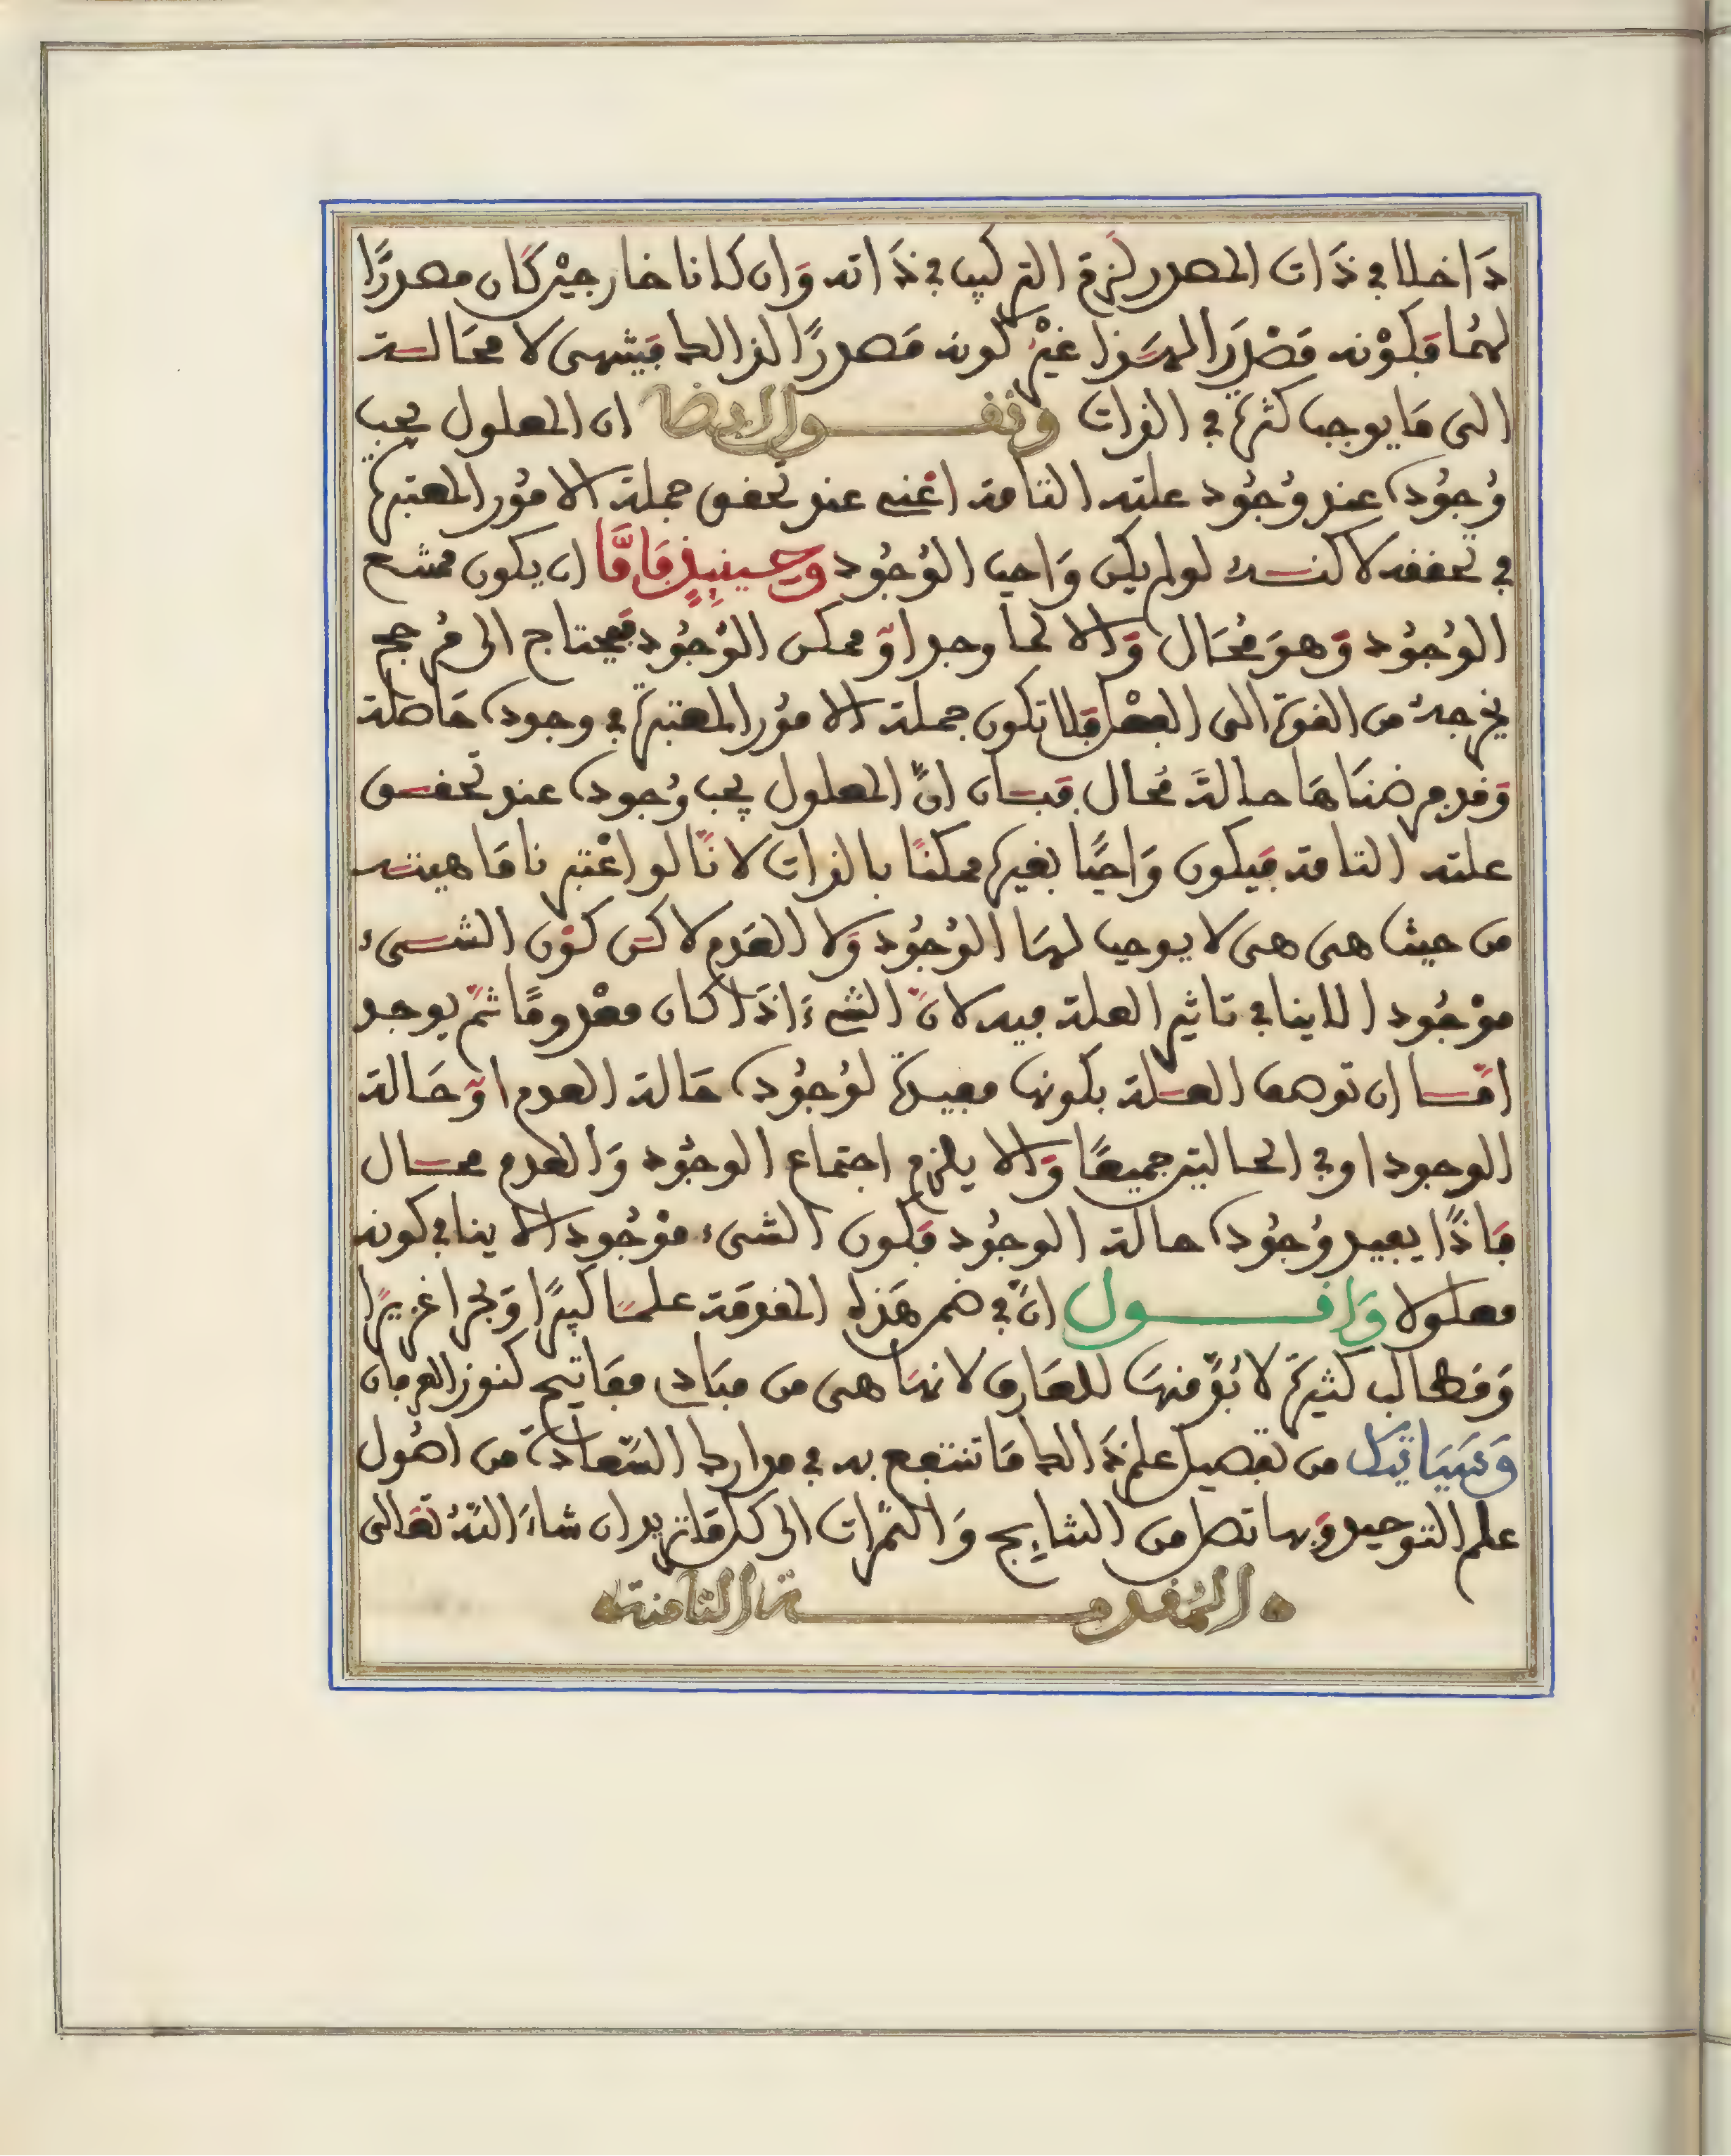 دَاخلا في ذَات المصدر لَزِمَ التركيب في ذَاته وَان كانا خارجيْن كَان مصدرًا
لهُمَا فَكوْنه مَصْدَرا لهَذا غيْر كونه مَصدرًا لذالك فينتهى لا محَالـة
الى مَا يوجب كثرة في الذات ونقـــول ايضا ان المعلول يجب
وُجوُده عند وُجُود علته التامة اعْنى عند تحقق جملة الامُور المعتبرة
في تحققه لاكنـه لو لم يكن وَاجب الوُجُود وحينيذٍ فَامَّا ان يكون ممتنع
الوُجُود وَهوَ مُحَال وَالا لما وجد اوْ ممكن الوُجُود فيحتاج الى مُرجح
يخرجهُ من القوة الى الفعْل فلا تكون جملة الامُور المعتبرة في وجوده حَاصلة
وَقد فرضنَاهَا حالة مُحال فبـان انَّ المعلول يجب وُجوده عند تحقـق
علته التامة فيكون وَاجبًا بغيره ممكنًا بالذات لانَّا لو اعْتبرنا مَاهيتـه
من حيث هى هى لا يوجب لهَا الوُجُود وَلا العَدم لاكن كوْن الشـىء
موْجُودا لا ينافي تاثير العلة فيه لانَّ الشىءَ اذَا كان معْدومًا ثمَّ يوجد
امّـا ان توصف العـلة بكونها مفيدة لوُجُوده حَالة العدم اوْ حَالة
الوجود او في الحالتين جميعًا وَالا يلزم اجتماع الوجُود وَالعدم محـال
فاذًا يفيد وُجُوده حالة الوجُود فكون الشىء موْجُودا لا ينافي كونه
معلولا وَاقــــول انَّ في ضمن هَذه المقدمَة علمـا كبيرًا وَبحرا غزيرًا
وَمطالب كثيرة لا بُدَّ منهَا للعَارف لانهَا هى من مبَادى مفَاتيح كنوز العرفان
وَسَيَاتيك من تفصيل علم ذَالك مَا تنتفع به في موارد السَّعادة من اصُول
علم التوحيد وَبها تصل من النتايج وَالثمَّرات الى كل مَا تريد ان شاءَ اللهُ تعَالى
المُقدمـــــة الثامنة